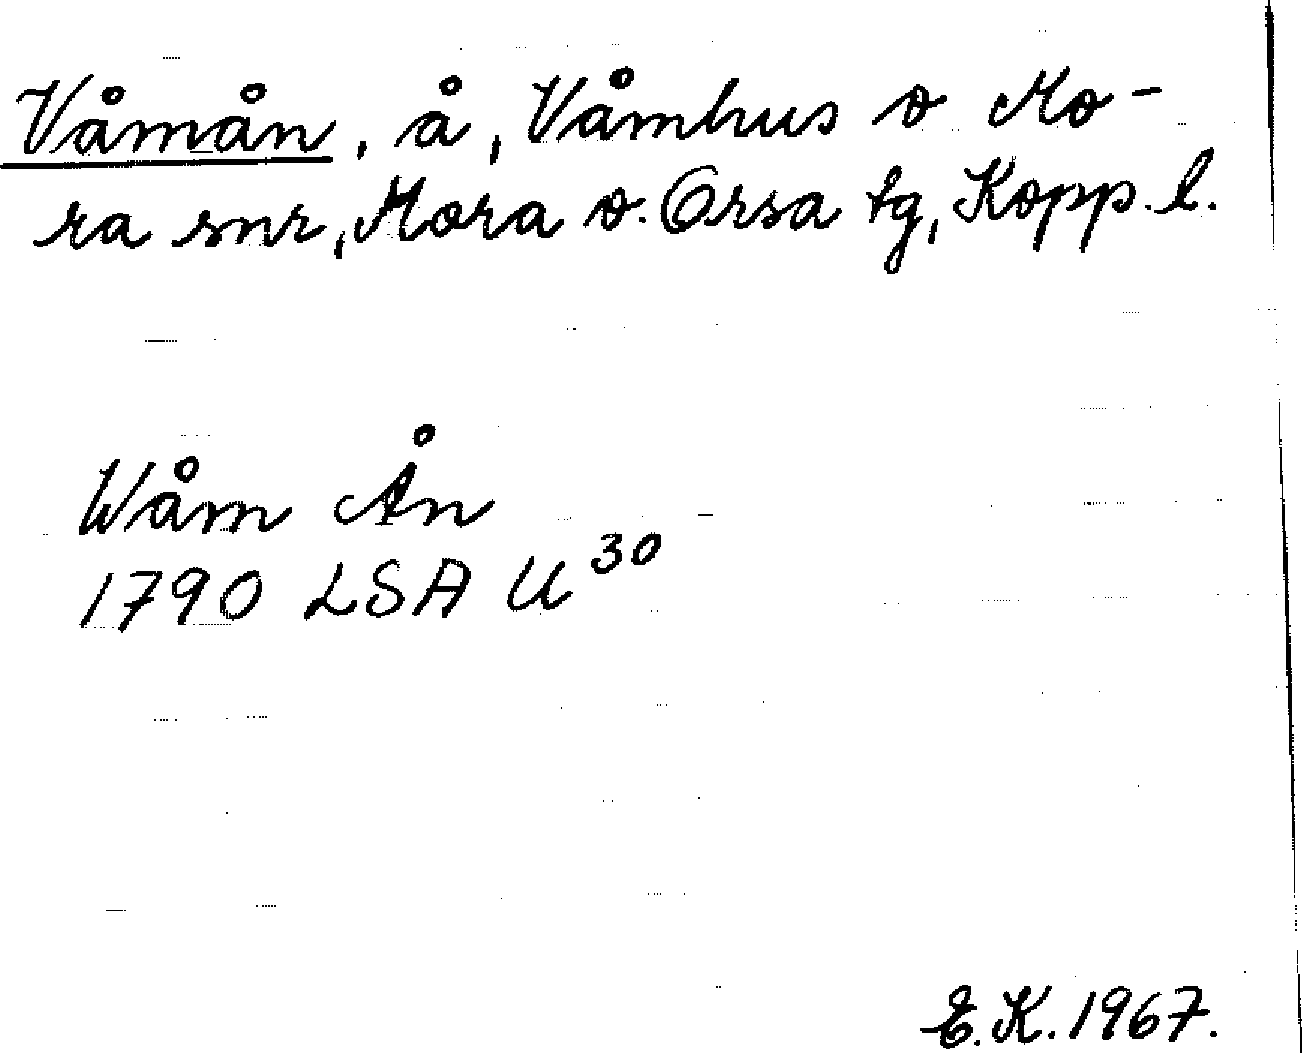 Våmån, å, Våmhus o Mo-
ra snr, Mora o. Orsa tg, Kopp. l.
Wåm Ån
1790 LSA U 30
E. K. 1967.